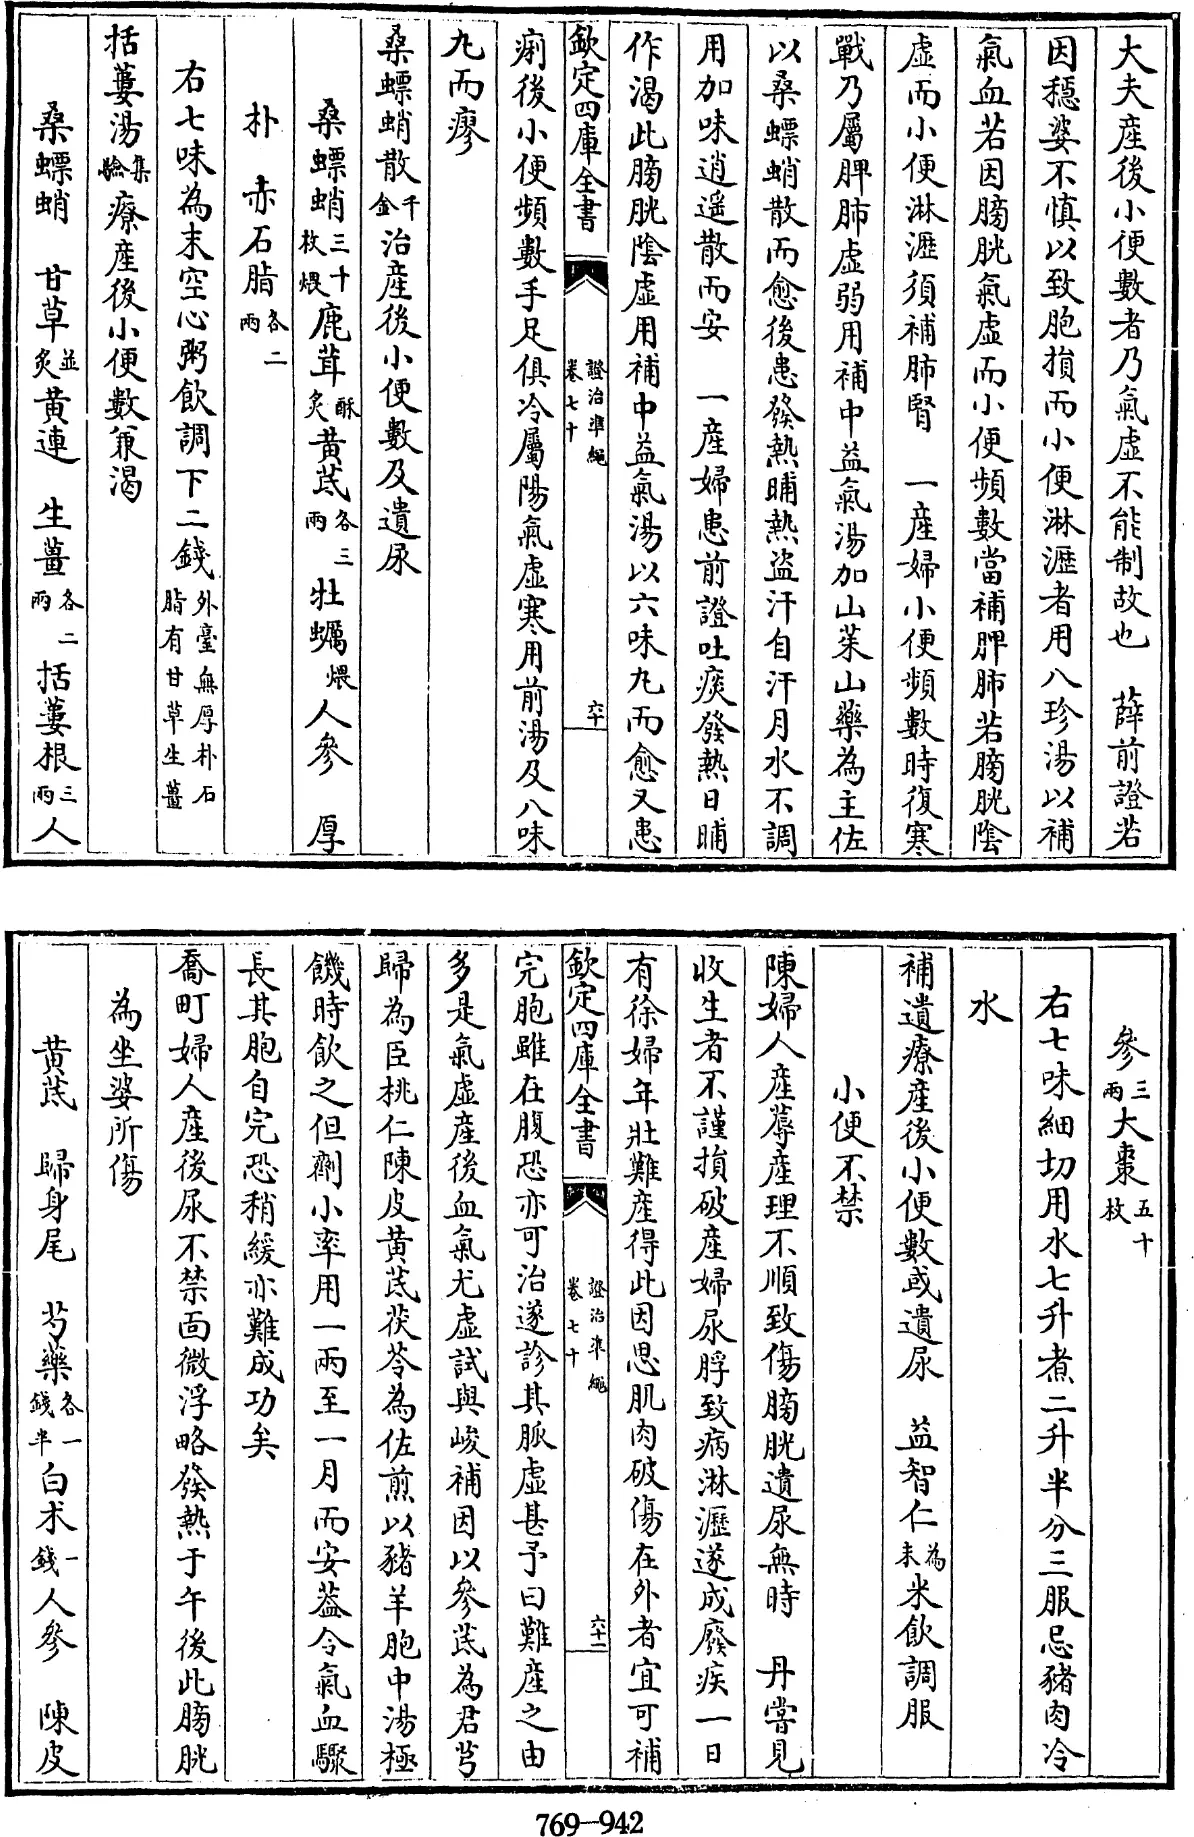 大夫産後小便數者乃氣虛不能制故也　薛前證若
因穩婆不慎以致胞損而小便淋瀝者用八珍湯以補
氣血若因膀胱氣虛而小便頻數當補脾肺若膀胱陰
虛而小便淋瀝須補肺腎　一產婦小便頻數時復寒
戰乃屬脾肺虛弱用補中益氣湯加山茱山藥為主佐
以桑螵蛸散而愈後患發熱晡熱盜汗自汗月水不調
用加味逍遥散而安　一產婦患前證吐痰發熱日晡
作渴此膀胱陰虛用補中益氣湯以六味丸而愈又患
欽定四庫全書　證治準繩卷七十　六十
痢後小便頻數手足俱冷屬陽氣虛寒用前湯及八味
丸而瘳
桑螵蛸散千金治産後小便數及遺尿
桑螵蛸三十枚煨鹿茸酥炙黃芪各三兩牡蠣煨人參　厚
朴　赤石脂各二兩
右七味為末空心粥飲調下二錢外臺無厚朴石脂有甘草生薑
括蔞湯集驗療産後小便數兼渴
桑螵蛸　甘草並炙黃連　生薑各二兩括蔞根三兩人
參三兩大棗五十枚
右七味細切用水七升煮二升半分三服忌豬肉冷
水
補遺療産後小便數或遺尿　益智仁為末米飲調服
小便不禁
陳婦人産蓐產理不順致傷膀胱遺尿無時　丹嘗見
收生者不謹損破産婦尿脬致病淋瀝遂成廢疾一日
有徐婦年壯難産得此因思肌肉破傷在外者宜可補
欽定四庫全書　證治準繩卷七十　六十一
完胞雖在腹恐亦可治遂診其脈虛甚予曰難産之由
多是氣虛産後血氣尤虛試與峻補因以參芪為君芎
歸為臣桃仁陳皮黃芪茯苓為佐煎以豬羊胞中湯極
饑時飲之但劑小率用一兩至一月而安蓋令氣血驟
長其胞自完恐稍緩亦難成功矣
喬町婦人産後尿不禁面微浮略發熱于午後此膀胱
為坐婆所傷
黃芪　歸身尾　芍藥各一錢半白术一錢人參　陳皮
769-942